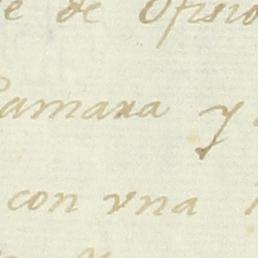 de Ofisio
Camara y
con vna